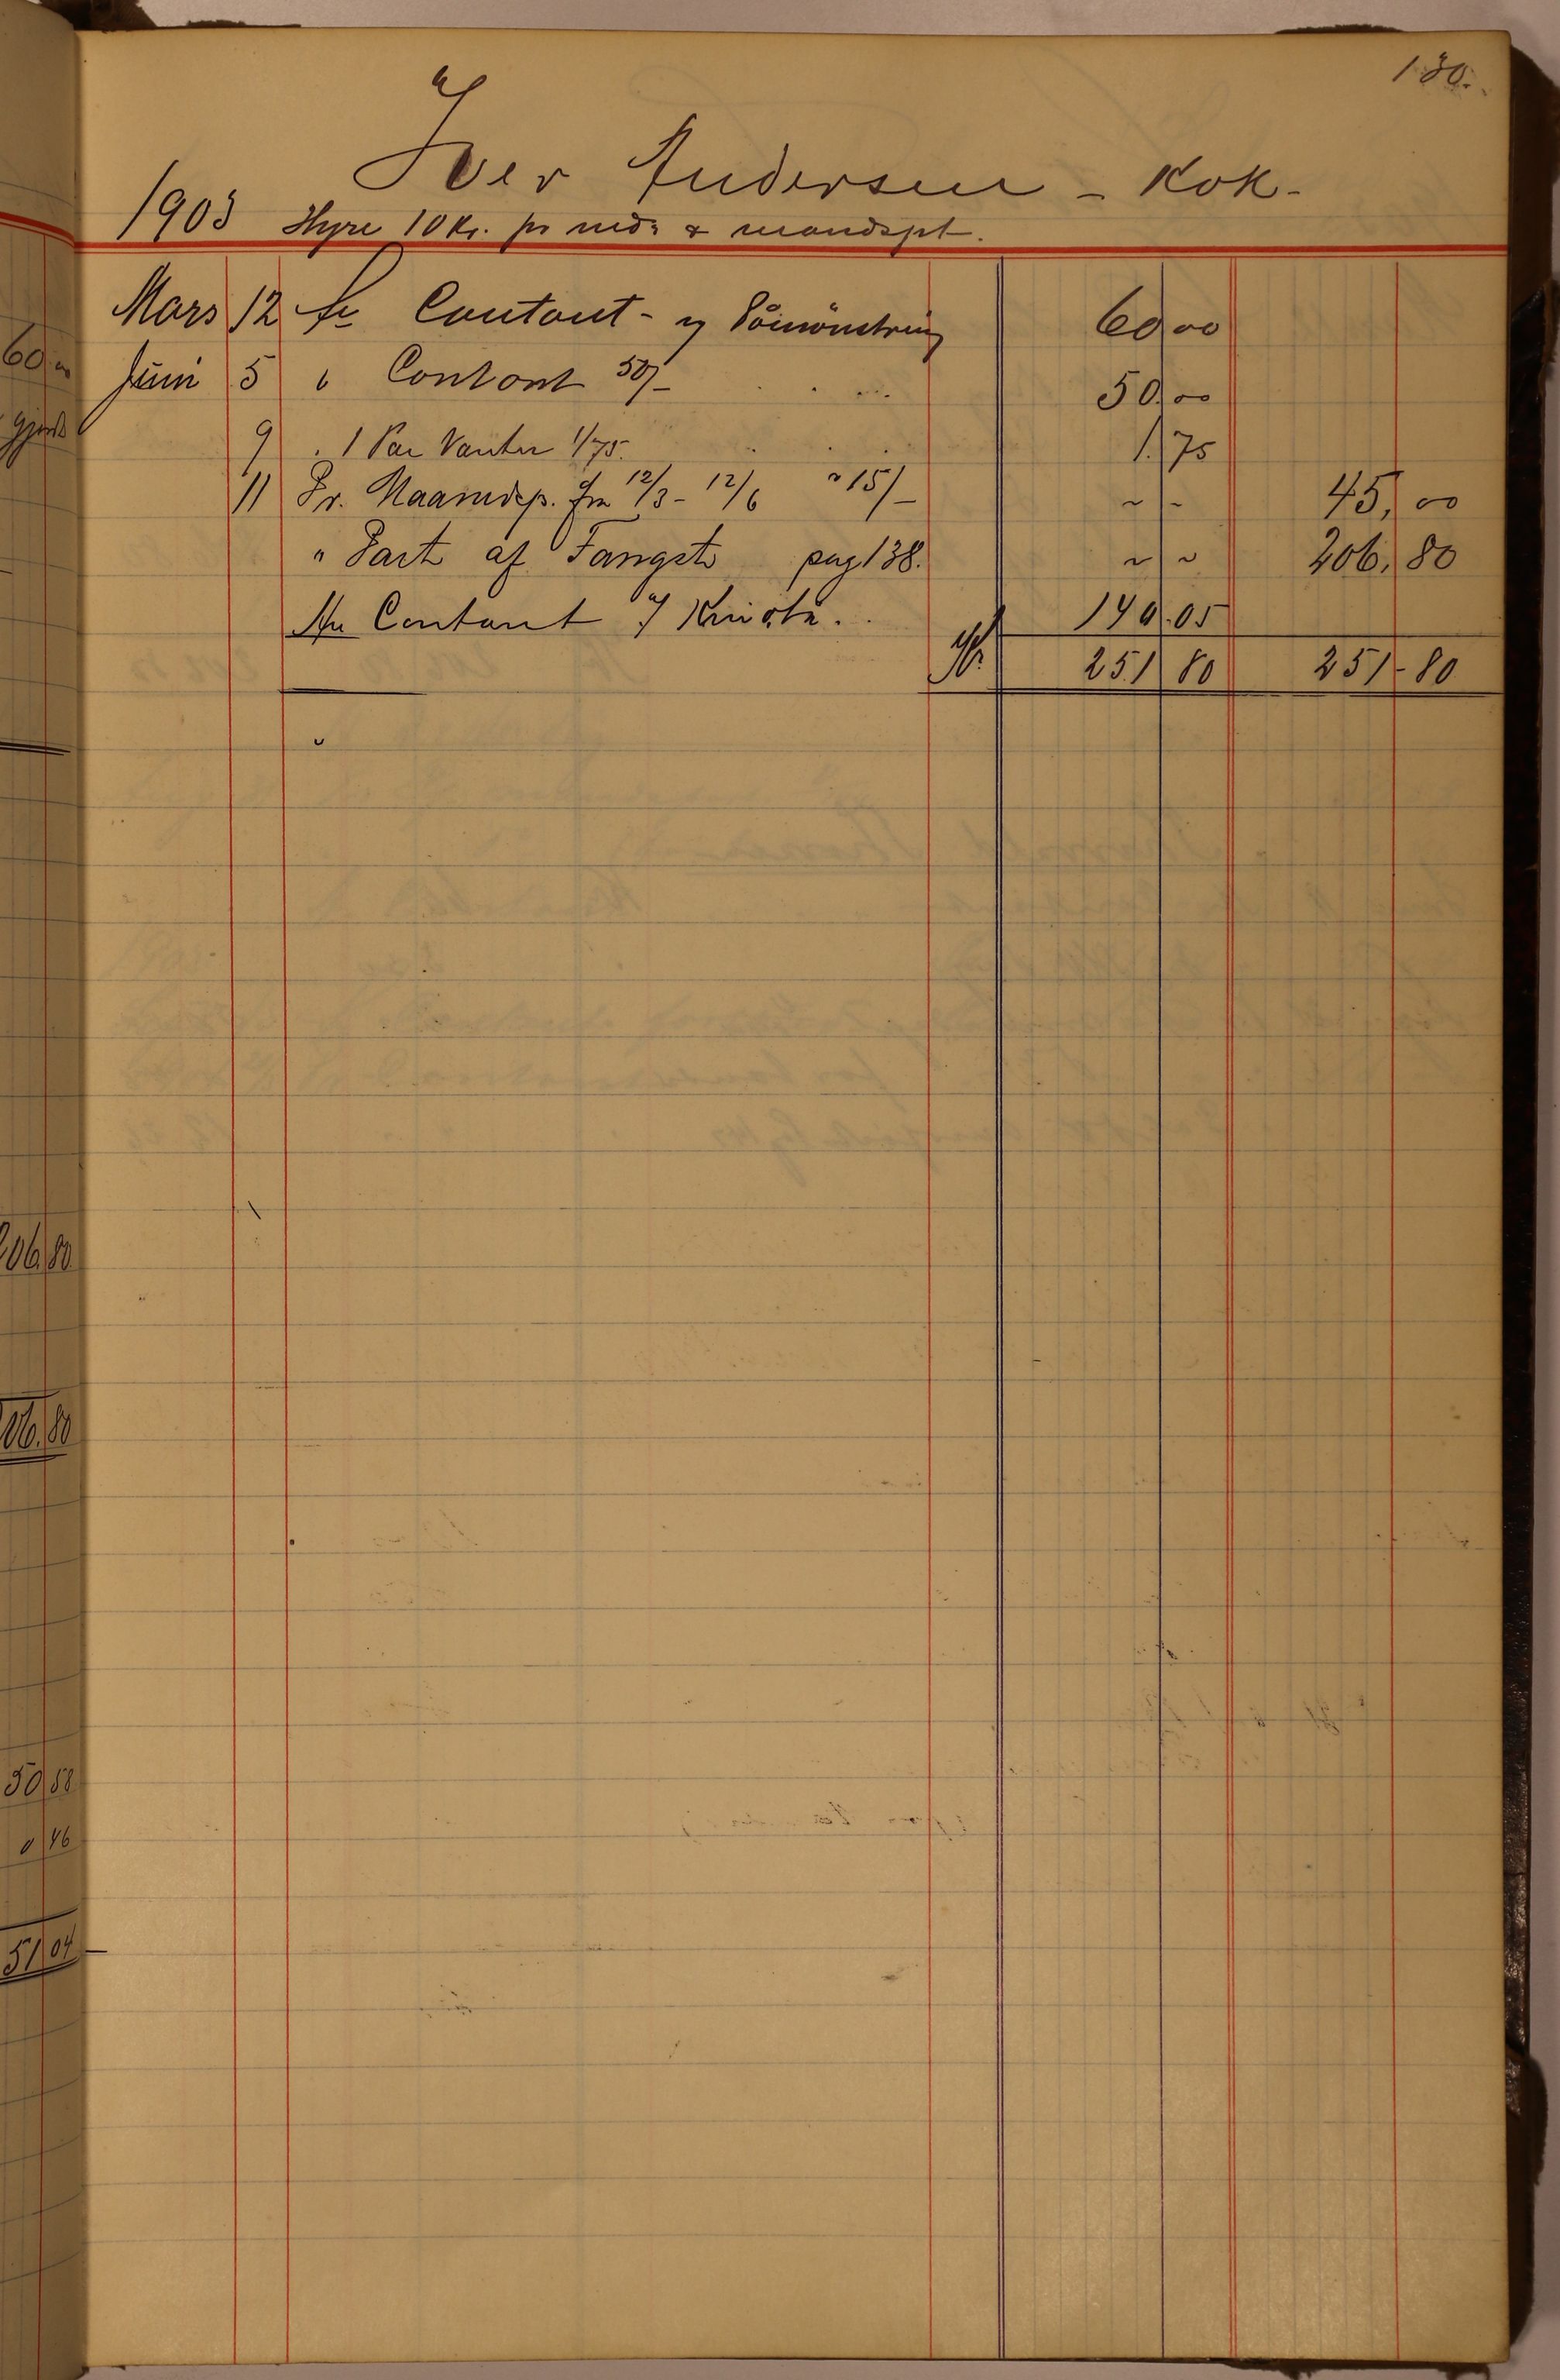 130.
Iver Andersen - Kok -
1903 Hyre 10 Kr. pr md: & mandspt.
Mars 12 An Contant - v Påmönstring 60 00
Juni 5 " Contant 50/- 50.00
9 " 1 Par Vanter 1/75. 1.75
11 Pr. Maanedsp. fra 12/3 - 12/6 a 15/- 45,00
" Part af Fangst pag 138. 206,80
An Contant 140.05
Kr. 251 80 251-80
60
gjords
206.80
206.80
50 58
0 46
51 04